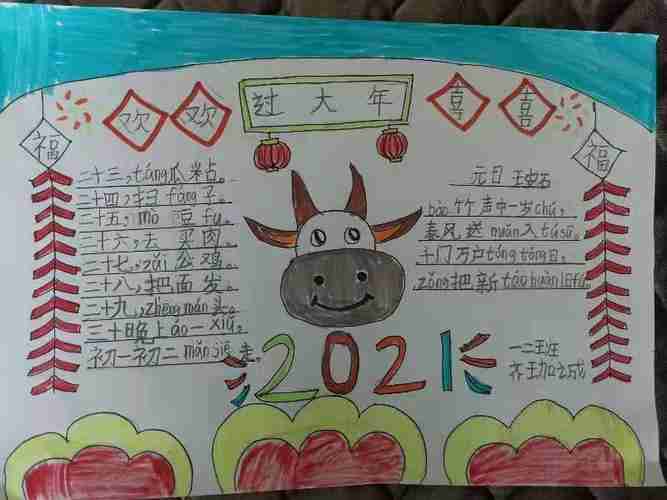 欢 欢 过 大 年 喜 喜
福
福
二十三,táng瓜粘。
二十四,扫fáng子。
二十五,mò豆fu。
二十六,去买肉。
二十七,zǎi公鸡。
二十八,把面发。
二十九,zhēng mán头。
三十晚上áo一xiǔ。
初一初二mǎn jiē走。
元日 王安石
bào竹声中一岁chú,
春风送nuǎn入tú sū。
千门万户tóng tóng日,
zǒng把新táo huàn旧fú。
2021
一二班